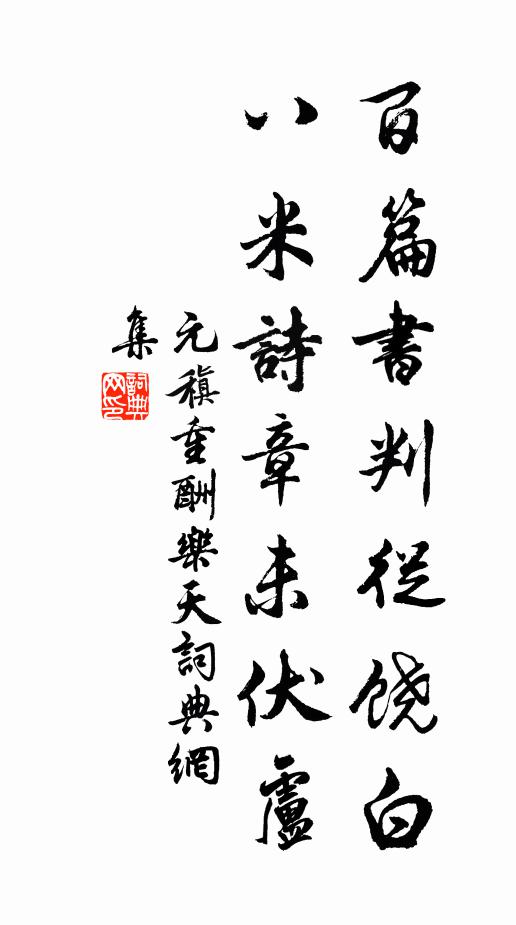 百篇書判從饒白
八米詩章未伏盧
元稹重酬樂天詞典網
集
詞典
网印